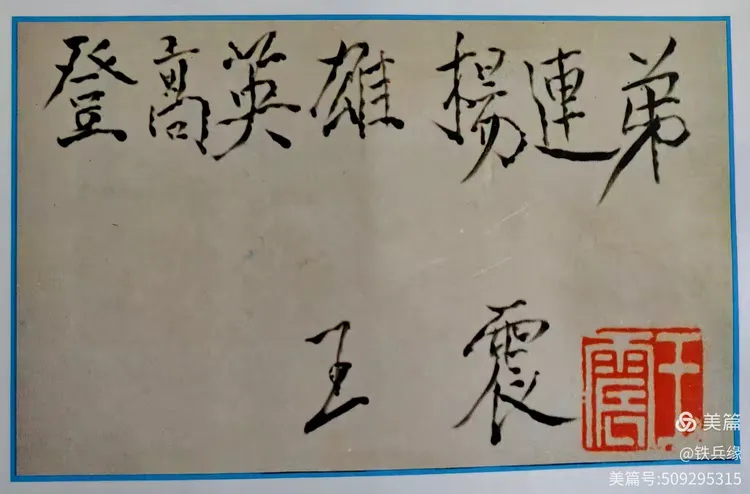 登高英雄 揚連弟
王震
王震
美篇
@铁兵缘
美篇号:509295315